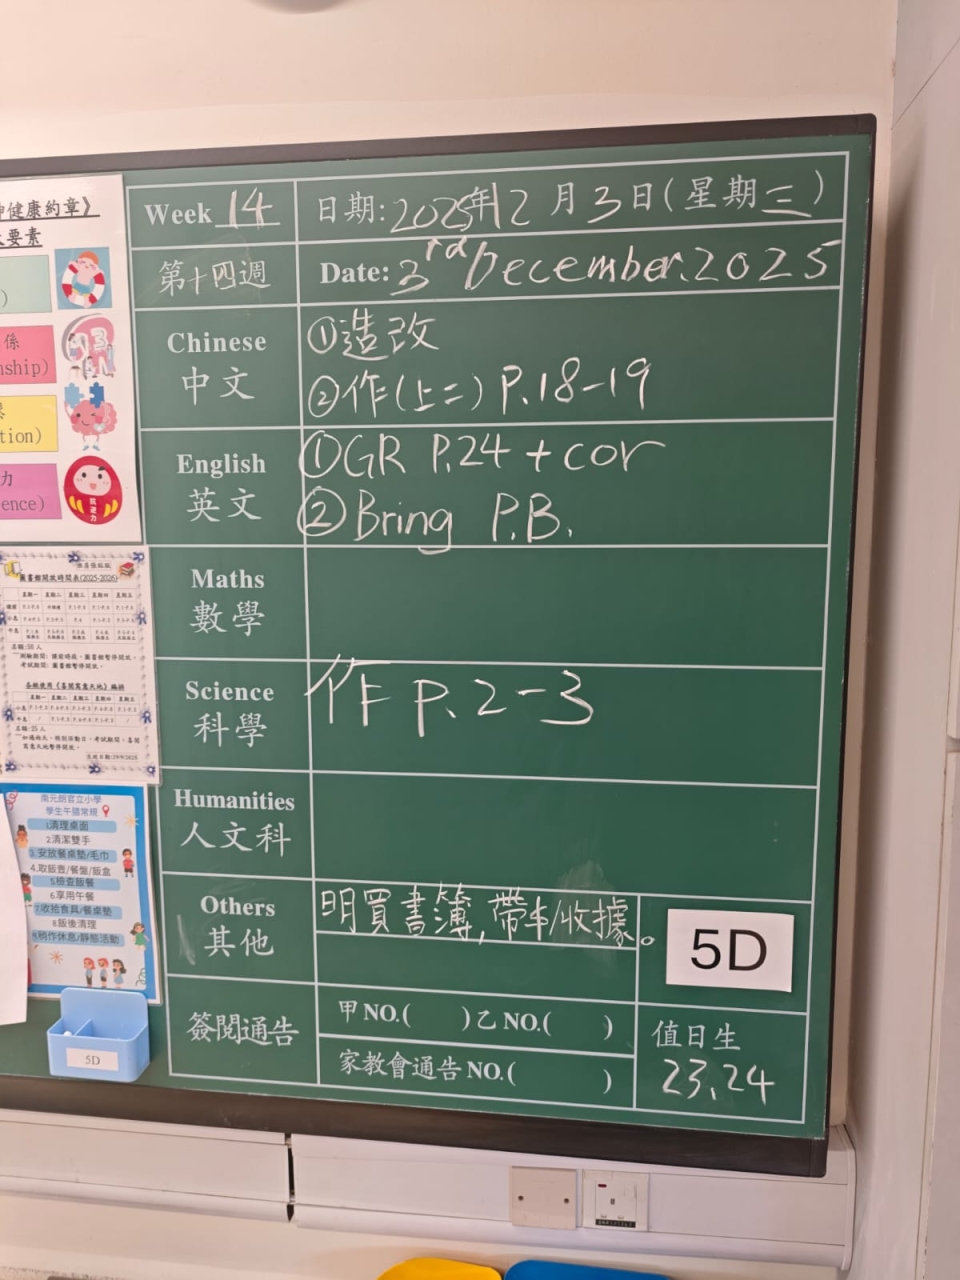 Week 14
日期: 2025年12月3日(星期三)
第十四週
Date: 3rd December. 2025
Chinese
中文
①造改
②作(上二) P.18-19
English
英文
①GR P.24 + cor
②Bring P.B.
Maths
數學
Science
科學
作 P. 2-3
Humanities
人文科
Others
其他
明買書簿,帶卡/收據。
5D
簽閱通告
甲 NO.( )乙 NO.( )
家教會通告 NO.( )
值日生
23、24
健康約章》
要素
係
nship)
tion)
力
ence)
圖書館開放時間表(2025-2026)
星期一 星期二 星期三 星期四 星期五
南元朗官立小學
學生午膳常規
1.清理桌面
2.清潔雙手
3.安放餐桌墊/毛巾
4.取飯壺/餐盤/飯盒
5.檢查飯餐
6.享用午餐
7.收拾食具/餐桌墊
8.飯後清理
9.稍作休息/靜態活動
5D